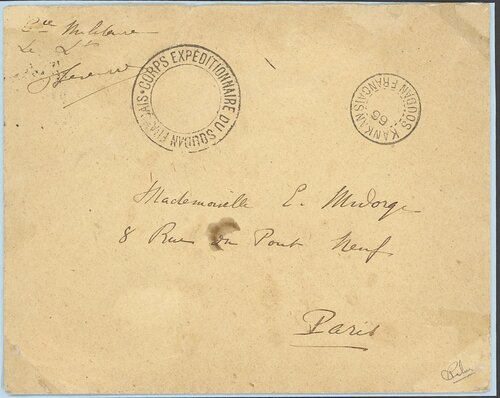 Cce Militaire
Le Lt
CORPS EXPÉDITIONNAIRE DU SOUDAN FRANÇAIS
KANKAN SOUDAN FRANÇAIS
Mademoiselle E. Midorge
8 Rue du Pont Neuf
Paris